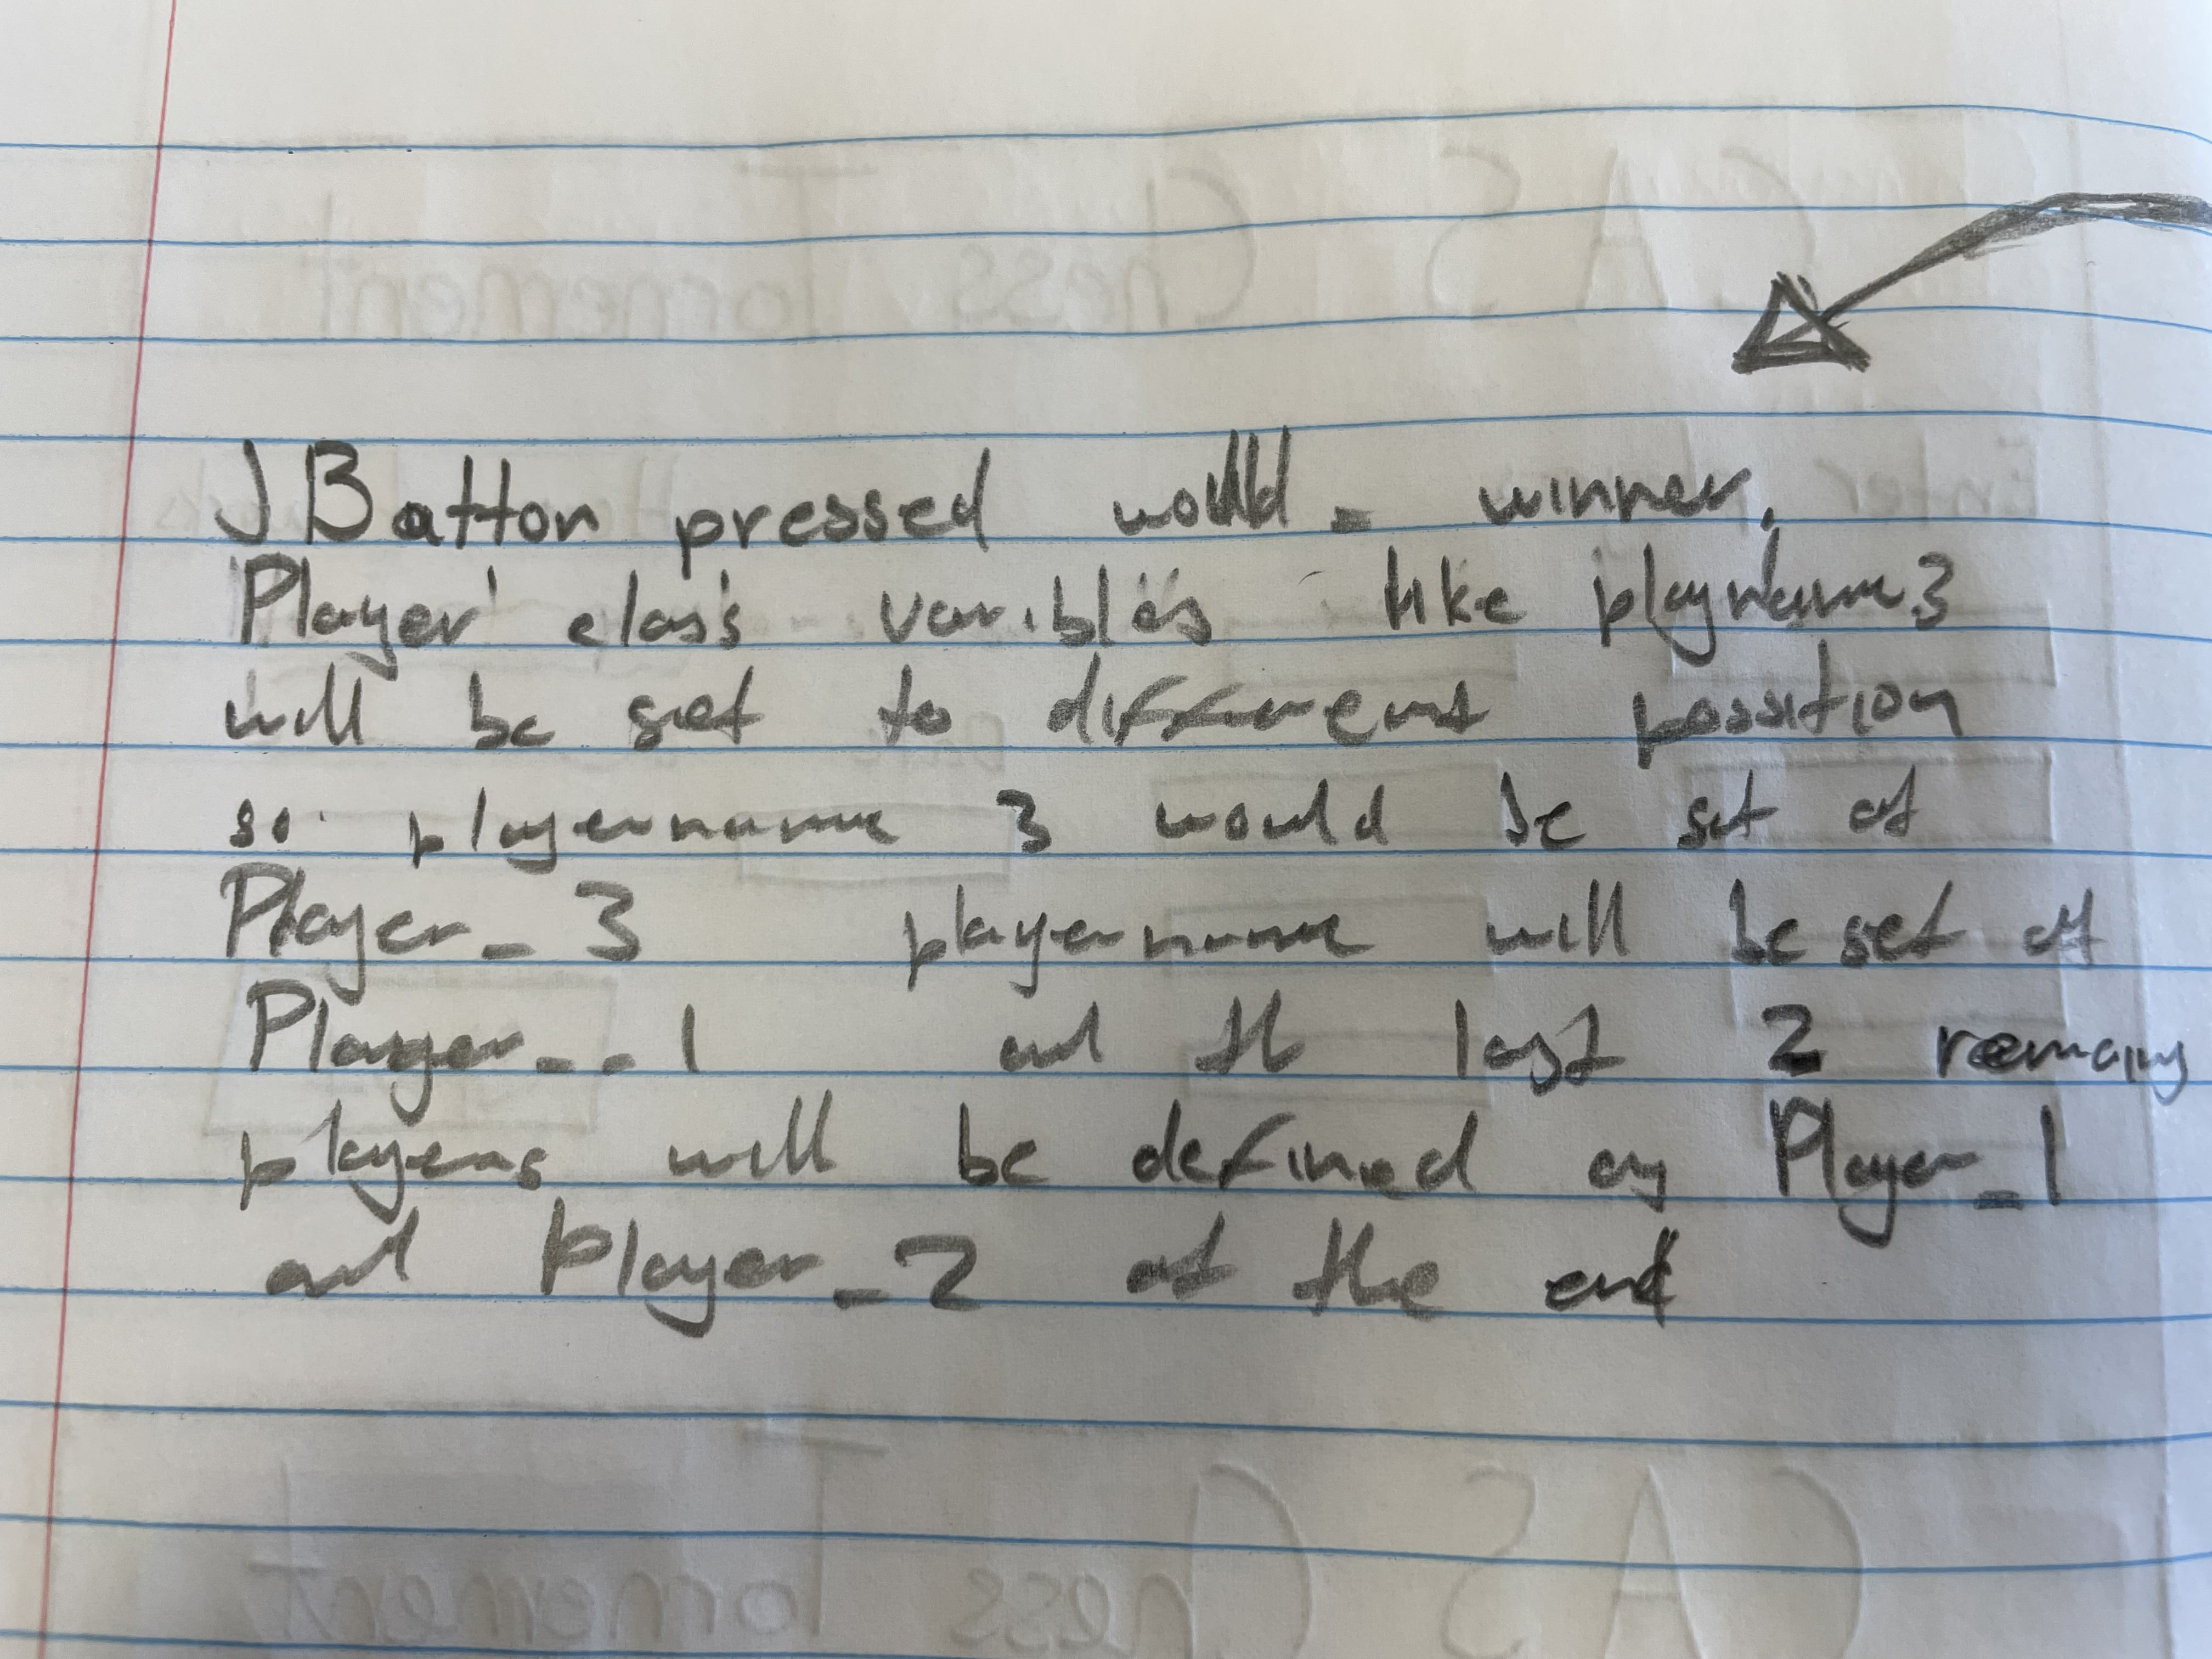 JButton pressed would = winner.
Player class varibles like playername3
will be set to different position
so playername 3 would be set at
Player_3 playername will be set at
Player_1 and the last 2 remaing
players will be defined as Player_1
and player_2 at the end